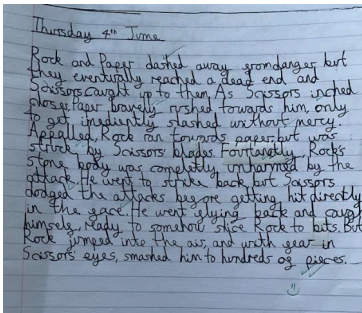 Thursday 4th June
Rock and Paper dashed away from danger but
they eventually reached a dead end and
Scissors caught up to them. As Scissors inched
closer, Paper bravely rushed towards him, only
to get imediently slashed without mercy.
Appalled, Rock ran towards paper but was
struck by Scissors' blades. Fortunantly, Rock's
stone body was completly unharmed by the
attack. He went to strike back but Scissors
dodged the attacks before getting hit directly
in the face. He went flying back and
himself, ready to somehow slice Rock to bits. But
Rock jumped into the air, and with fear in
Scissors' eyes, smashed him to hundreds of pieces.